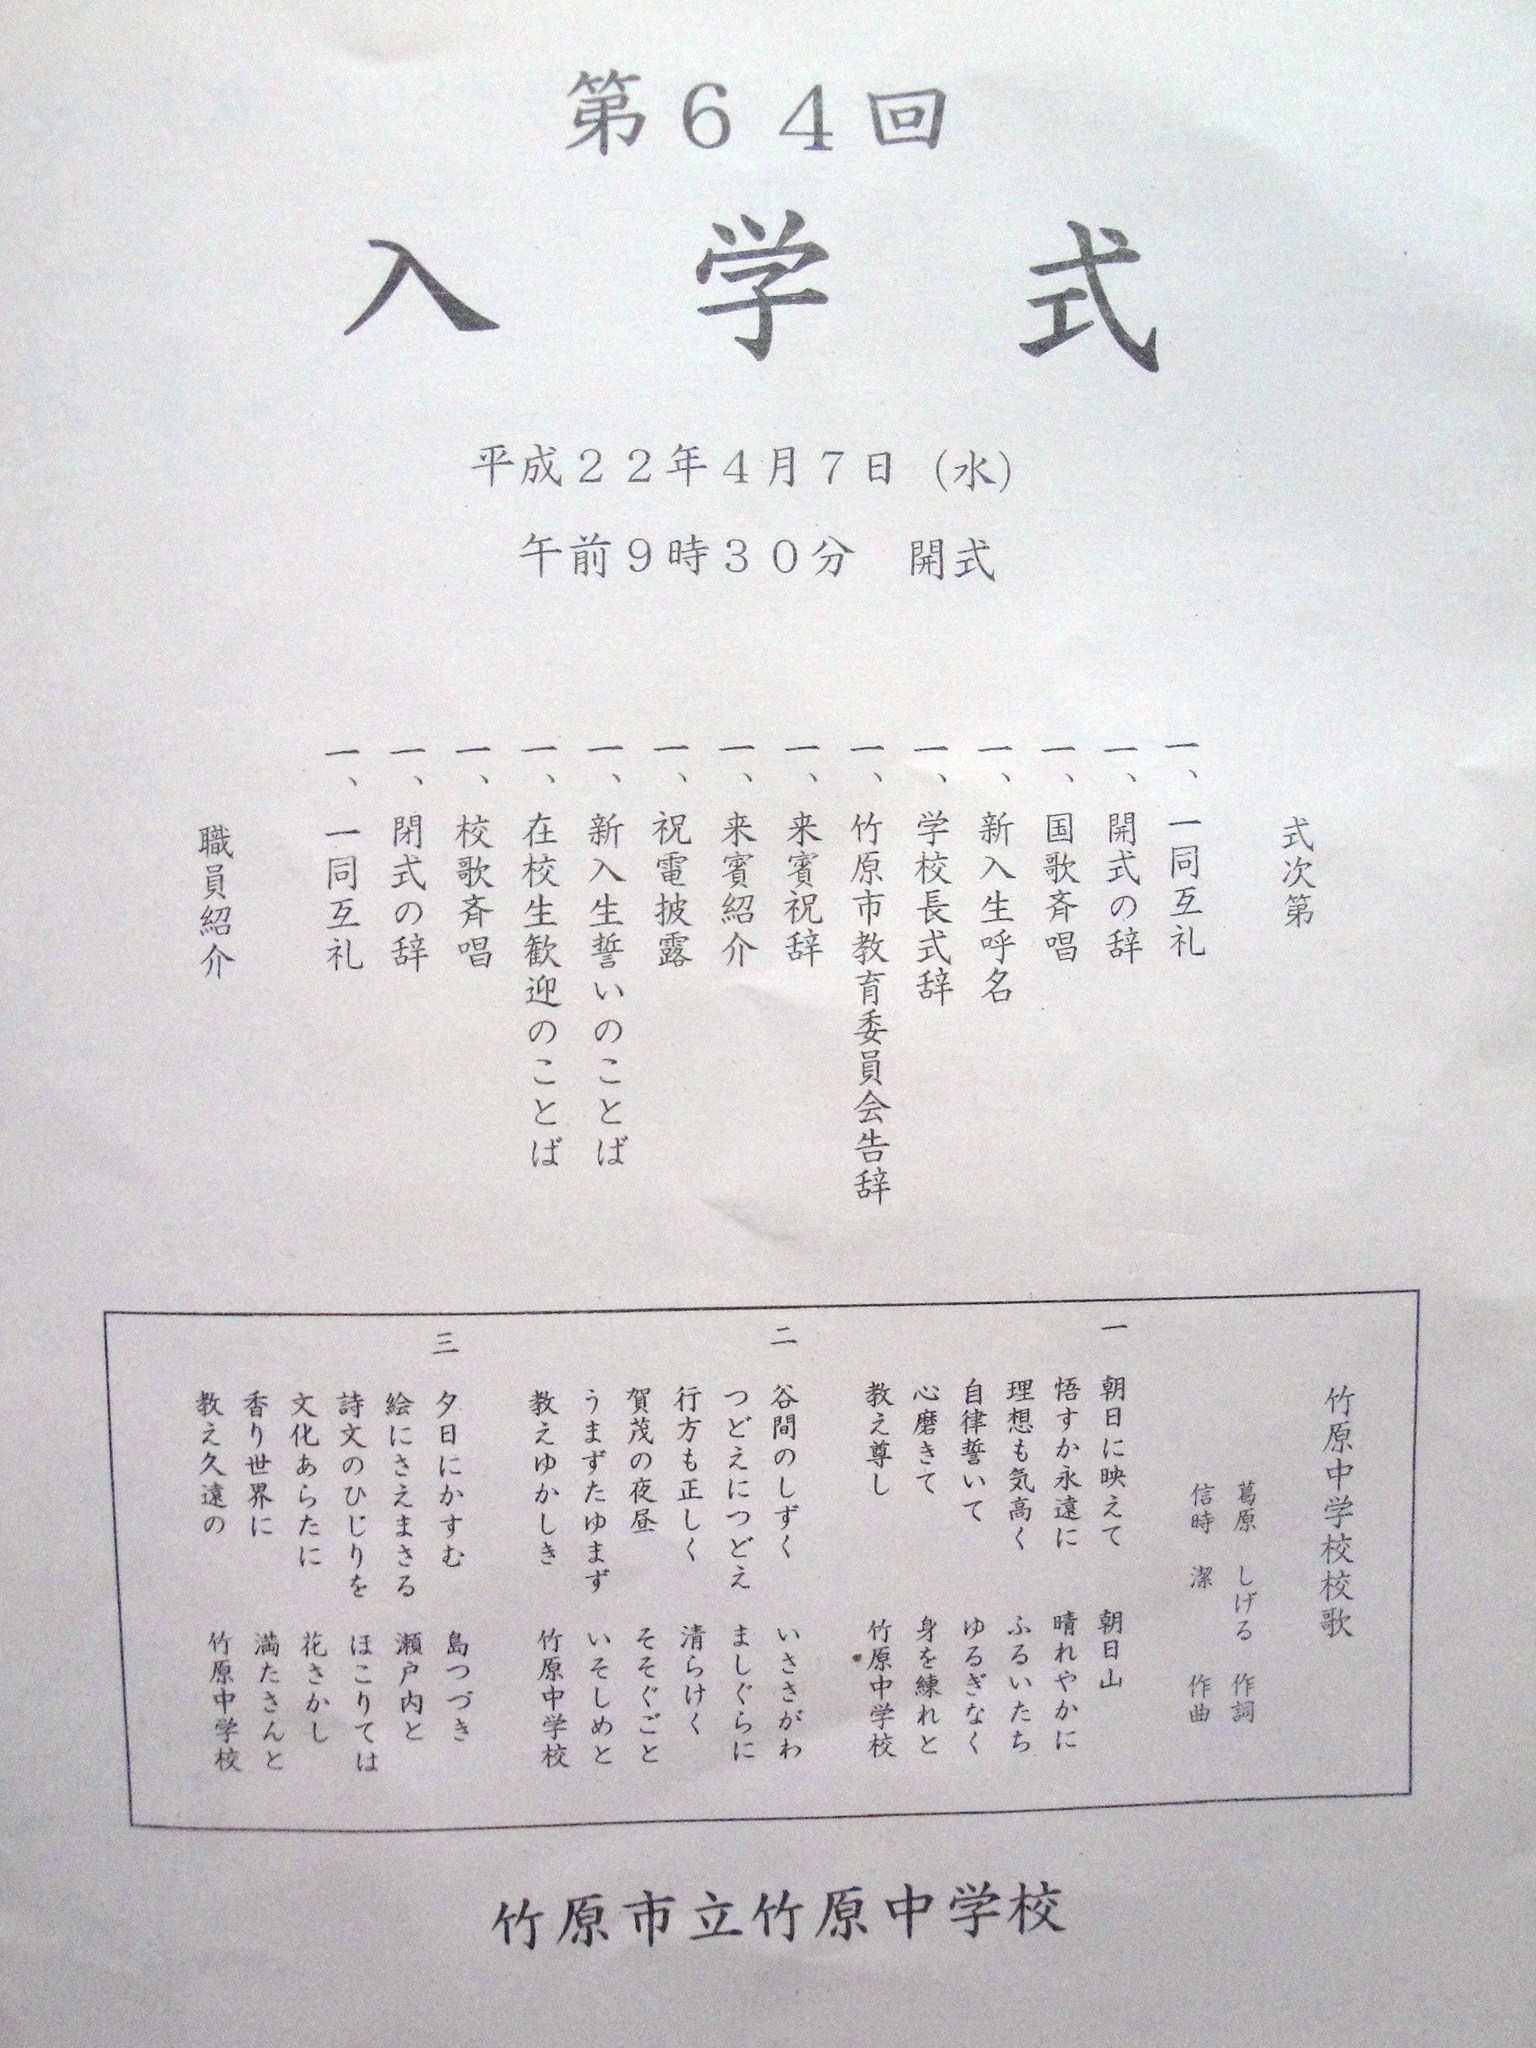 第64回
入学式
平成22年4月7日(水)
午前9時30分　開式
式次第
一、一同互礼
一、開式の辞
一、国歌斉唱
一、新入生呼名
一、学校長式辞
一、竹原市教育委員会告辞
一、来賓祝辞
一、来賓紹介
一、祝電披露
一、新入生誓いのことば
一、在校生歓迎のことば
一、校歌斉唱
一、閉式の辞
一、一同互礼
職員紹介
竹原中学校校歌
葛原　しげる　作詞
信時　潔　作曲
一　朝日に映えて　朝日山
悟すか永遠に　晴れやかに
理想も気高く　ふるいたち
自律誓いて　ゆるぎなく
心磨きて　身を練れと
教え尊し　竹原中学校
二　谷間のしずく　いささがわ
つどえにつどえ　ましぐらに
行方も正しく　清らけく
賀茂の夜昼　そそぐごと
うまずたゆまず　いそしめと
教えゆかしき　竹原中学校
三　夕日にかすむ　島つづき
絵にさえまさる　瀬戸内と
詩文のひじりを　ほこりては
文化あらたに　花さかし
香り世界に　満たさんと
教え久遠の　竹原中学校
竹原市立竹原中学校